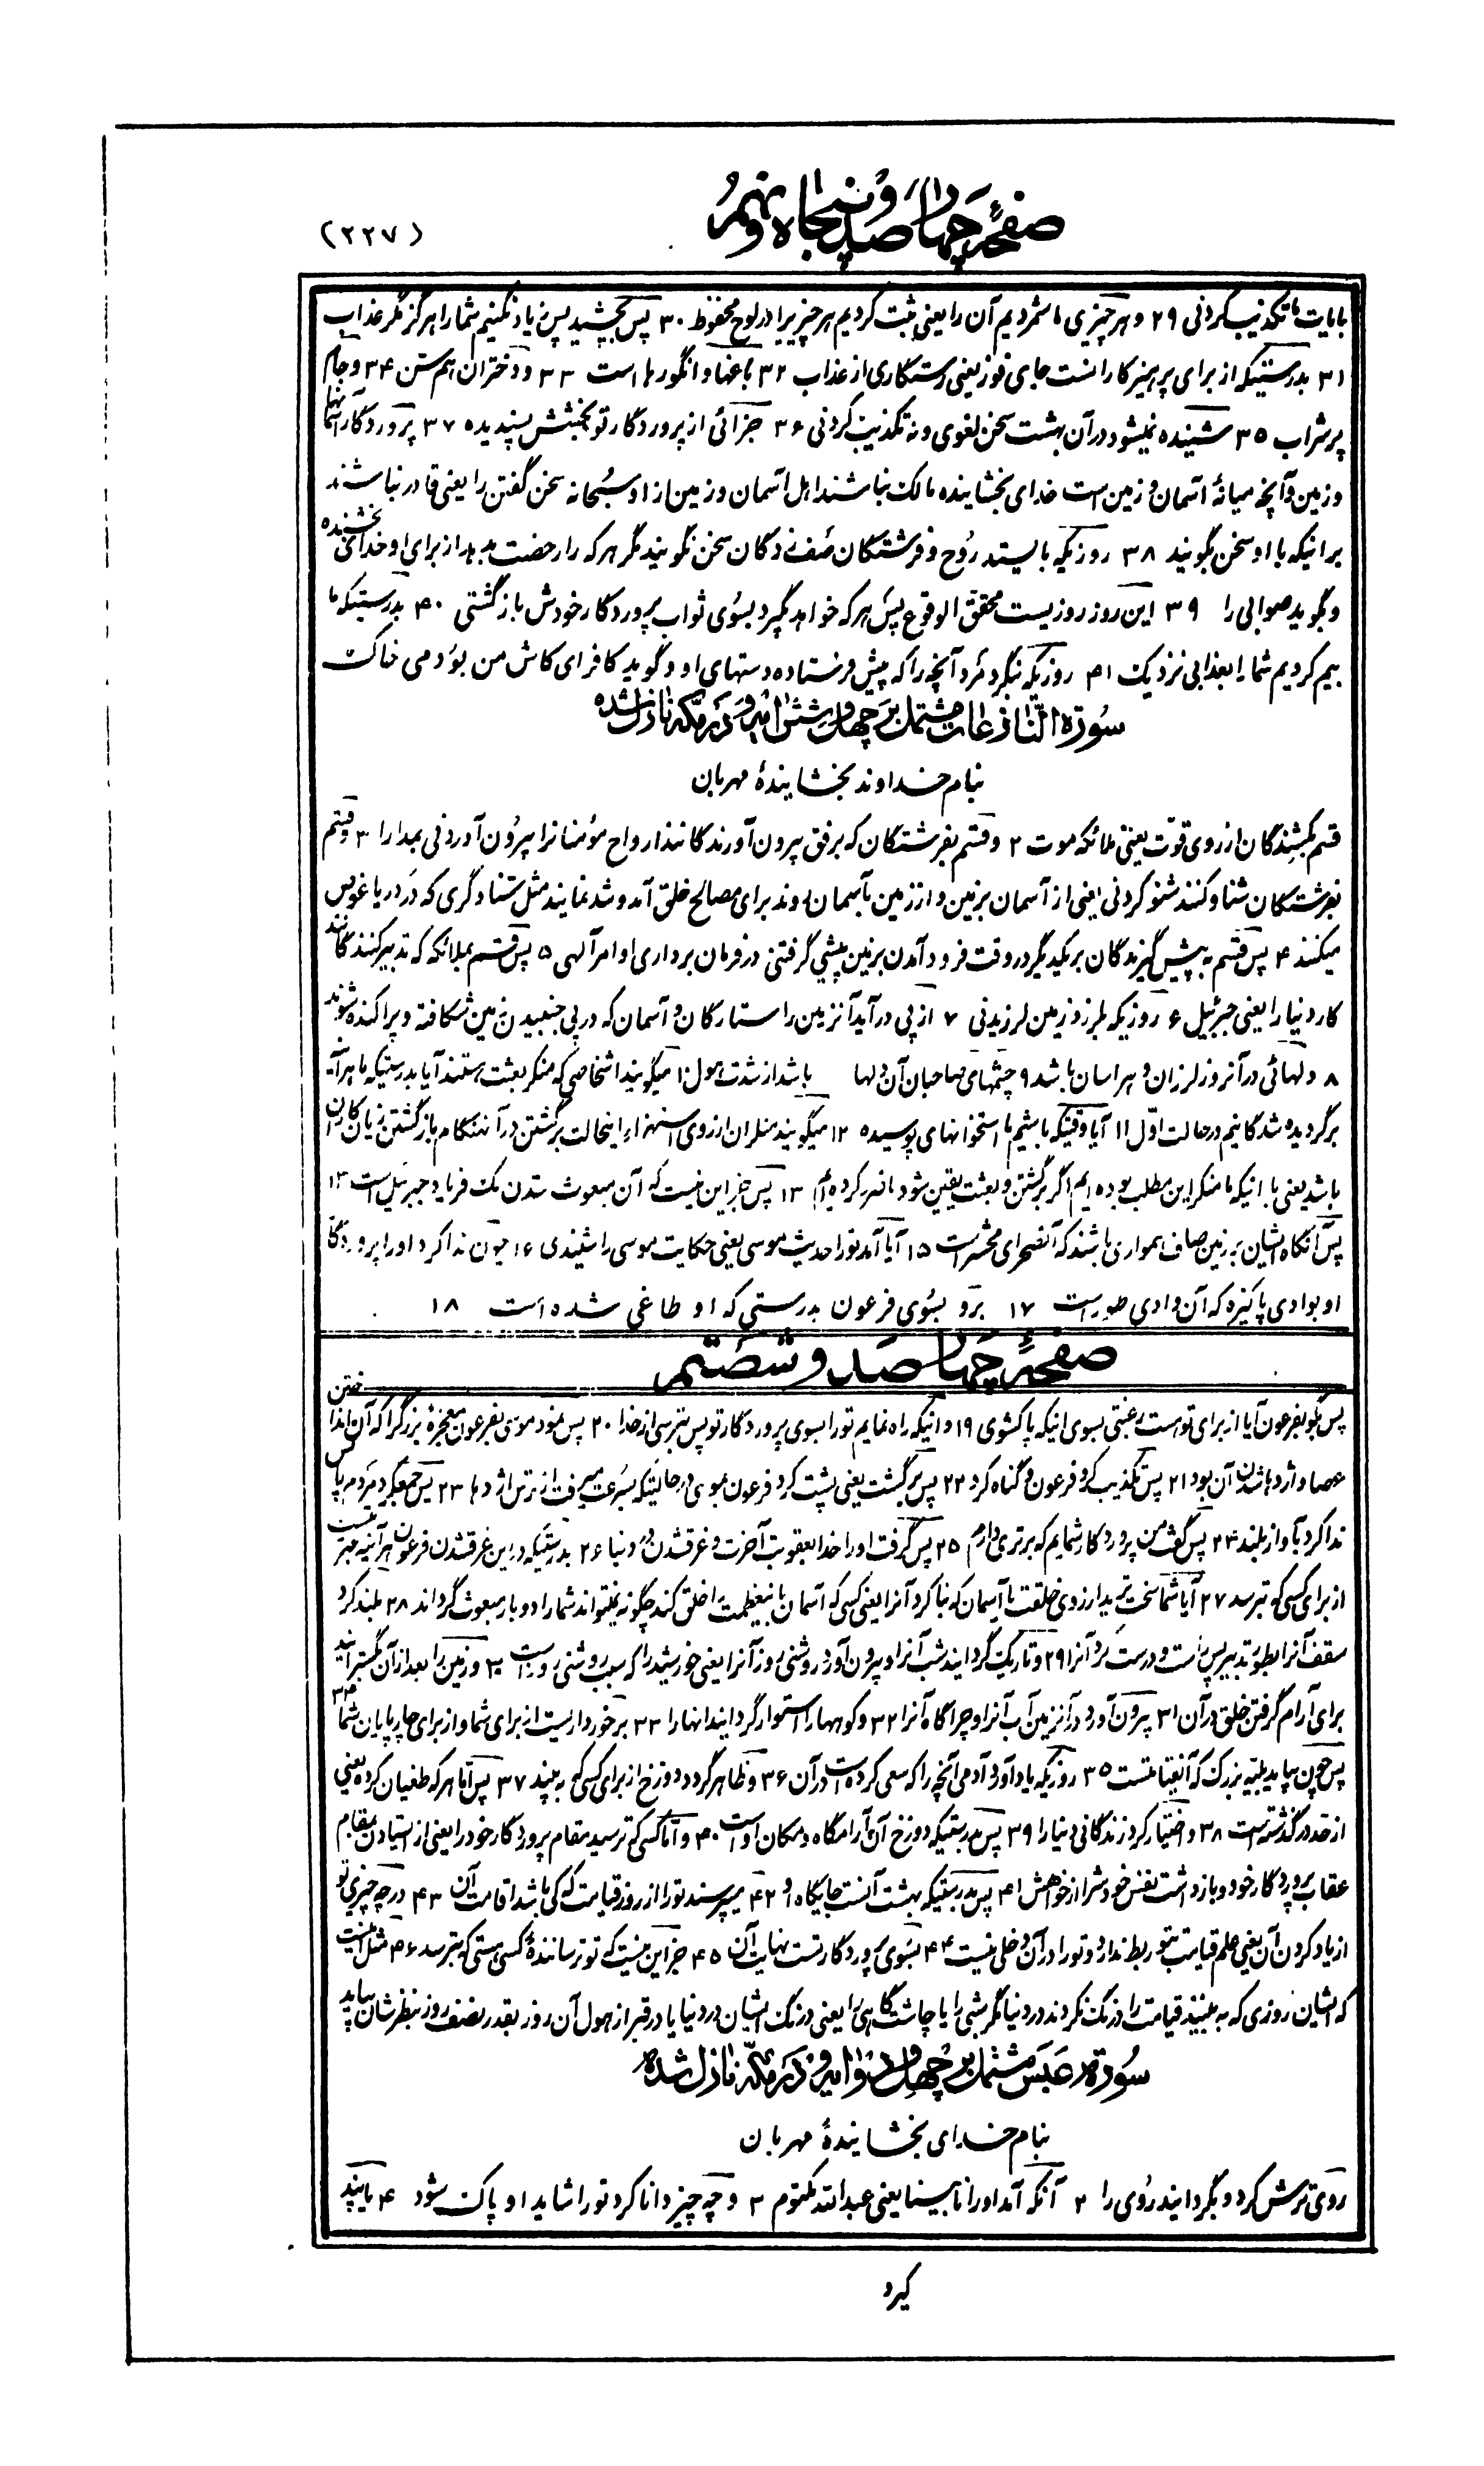 صفحهٔ چهارصد و پنجاه و نهم
(۲۲۷)
بایات ما تکذیب کردنی ۲۹ و هر چیزی ما شمردیم آن را یعنی ثبت کردیم هر چیز یرا در لوح محفوظ ۳۰ پس بچشید پس زیاد نکنیم شما را هرگز مگر عذاب
۳۱ بدرستیکه از برای پرهیزکارانست جای فوز یعنی رستگاری از عذاب ۳۲ باغها و انگورها است ۳۳ و دختران هم سن ۳۴ و جام
پر شراب ۳۵ شنیده نمیشود در آن بهشت سخن لغوی و نه تکذیب کردنی ۳۶ جزائی از پروردگار تو بخشش پسندیده ۳۷ پروردگار آسمانها
و زمین و آنچه میانهٔ آسمان و زمین است خدای بخشاینده مالک نباشند اهل آسمان و زمین از او سبحانه سخن گفتن را یعنی قادر نباشند
برانیکه با او سخن بگویند ۳۸ روزیکه بایستد روح و فرشتگان صف زدگان سخن نگویند مگر هر که را رخصت بدهد از برای او خدای بخشنده
و بگوید صوابی را ۳۹ این روز روزیست محقق الوقوع پس هر که خواهد بگیرد بسوی ثواب پروردگار خودش بازگشتی ۴۰ بدرستیکه ما
بیم کردیم شما را بعذابی نزدیک ۴۱ روزیکه بنگرد مرد آنچه را که پیش فرستاده دستهای او و گوید کافر ای کاش من بودمی خاک
سوره النازعات مشتمل بر چهل و شش آیه و در مکه نازل شده
بنام خداوند بخشایندهٔ مهربان
قسم بکشندگان از روی قوّت یعنی ملائکه موت ۲ و قسم بفرشتگان که برفق بیرون آورندگانند ارواح مؤمنانرا بیرون آوردنی بمدارا ۳ و قسم
بفرشتگان شنا کنند شنو کردنی یعنی از آسمان بزمین و از زمین بآسمان روند برای مصالح خلق آمد و شد نمایند مثل شناگری که در دریا غوص
میکنند ۴ پس قسم به پیش گیرندگان بر یکدیگر در وقت فرود آمدن بزمین پیشی گرفتنی در فرمان برداری اوامر آلهی ۵ پس قسم بملائکه که تدبیر کنندگانند
کار دنیا را یعنی جبرئیل ۶ روزیکه بلرزد زمین لرزیدنی ۷ از پی در آید آنزمین را ستارگان و آسمان که در پی جنبیدن زمین شکافته و پراکنده شوند
۸ دلهائی در آنروز لرزان و هراسان باشد ۹ چشمهای صاحبان آن دلها باشد از شدت هول ۱۰ میگویند اشخاصی که منکر بعثت هستند آیا بدرستیکه ما هر آینه
برگردیده شدگانیم در حالت اوّل ۱۱ آیا وقتیکه باشیم ما استخوانهای پوسیده ۱۲ میگویند منکران از روی استهزاء اینحالت برگشتن در آنهنگام بازگشتن زیان کاران
باشد یعنی با انیکه ما منکر این مطلب بوده ایم اگر برگشتن و بعثت یقین شود ما ضرر کرده ایم ۱۳ پس جز این نیست که آن مبعوث شدن یک فریاد جبرئیل است ۱۴
پس آنگاه ایشان بر زمین صاف همواری باشند که آنصحرای محشر است ۱۵ آیا آمد تو را حدیث موسی یعنی حکایت موسی را شنیدی ۱۶ چون ندا کرد او را پروردگار
او بوادی پاکیزه که آن وادی طویست ۱۷ برو بسوی فرعون بدرستی که او طاغی شده است ۱۸
صفحهٔ چهارصد و شصتم
پس بگو بفرعون آیا از برای تو هست رغبتی بسوی انیکه پاک شوی ۱۹ و انیکه راه نمایم تو را بسوی پروردگار تو پس بترسی از خدا ۲۰ پس نمود موسی بفرعون معجزهٔ بزرگ را که آن انداختن
عصا و اژدها شدن آن بود ۲۱ پس تکذیب کرد فرعون و گناه کرد ۲۲ پس برگشت یعنی پشت کرد فرعون بموسی در حالتیکه بسرعت میرفت از ترس اژدها ۲۳ پس جمع کرد مردمرا پس
ندا کرد بآواز بلند ۲۴ پس گفت من پروردگار شمایم که برتری دارم ۲۵ پس گرفت او را خدا بعقوبت آخرت و غرق شدن در دنیا ۲۶ بدرستیکه در این غرقشدن فرعون هر آینه عبرتست
از برای کسی که بترسد ۲۷ آیا شما سخت ترید از روی خلقت یا آسمان که بنا کرد آنرا یعنی کسی که آسمان باینعظمت را خلق کند چگونه نمیتواند شما را دو بار مبعوث گرداند ۲۸ بلند کرد
سقف آنرا پس راست و درست کرد آنرا ۲۹ و تاریک گردانید شب آنرا و بیرون آورد روشنی روز آنرا یعنی خورشید را که سبب روشنی روز است ۳۰ و زمین را بعد از آن گسترانید
برای آرام گرفتن خلق در آن ۳۱ بیرون آورد در آنزمین آب آنرا و چراگاه آنرا ۳۲ و کوهها را استوار گردانید انها را ۳۳ برخورداریست از برای شما و از برای چارپایان شما ۳۴
پس چون بیاید بلیّه بزرگ که آنقیامتست ۳۵ روزیکه یاد آورد آدمی آنچه را که سعی کرده است در آن ۳۶ و ظاهر گردد دوزخ از برای کسی که به بیند ۳۷ پس امّا هر که طغیان کرده یعنی
از حد در گذشته است ۳۸ و اختیار کرد زندگانی دنیا را ۳۹ پس بدرستیکه دوزخ آن آرامگاه و مکان اوست ۴۰ و امّا کسی که ترسید مقام پروردگار خود را یعنی از ایستادن بمقام
عقاب پروردگار خود و باز داشت نفس خودش را از خواهش ۴۱ پس بدرستیکه بهشت آنست جایگاه او ۴۲ میپرسند تو را از روز قیامت که کی باشد اقامت آن ۴۳ در چه چیزی تو
از یاد کردن آن یعنی علم قیامت بتو ربط ندارد و تو را در آن دخلی نیست ۴۴ بسوی پروردگار تست نهایت آن ۴۵ جز این نیست که تو ترسانندهٔ کسی هستی که بترسد ۴۶ مثل اینست
که ایشان روزی که به بینند قیامت را درنگ نکردند در دنیا مگر شبی را یا چاشتگاهی را یعنی درنگ ایشان در دنیا یا در قبر از هول آن روز بقدر نصف روز بنظرشان بیاید
سوره عبس مشتمل بر چهل و دو آیه و در مکه نازل شده
بنام خدای بخشایندهٔ مهربان
روی ترش کرد و بگردانید روی را ۲ آنکه آمد او را نابینا یعنی عبدالله مکتوم ۳ و چه چیز دانا کرد تو را شاید او پاک شود ۴ یا پند
گیرد